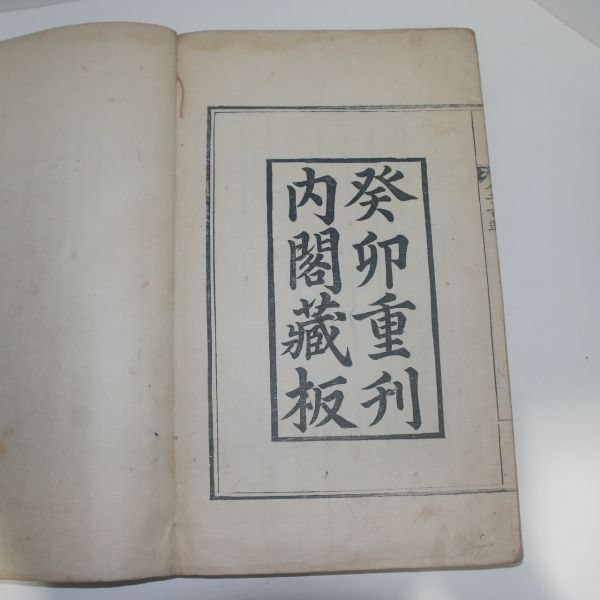 癸卯重刊
内閣藏板